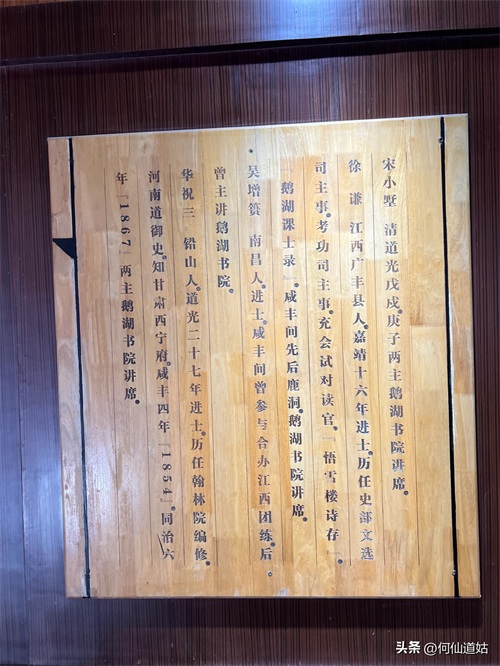 宋小墅 清道光戊戌。庚子两主鹅湖书院讲席。
徐谦 江西广丰县人。嘉靖十六年进士。历任史部文选
司主事。考功司主事。充会试对读官。「悟雪楼诗存」。
鹅湖课士录」。咸丰间先后鹿洞。鹅湖书院讲席。
吴增簧 南昌人。进士。咸丰间曾参与合办江西团练。后
曾主讲鹅湖书院。
华祝三 铅山人。道光二十七年进士。历任翰林院编修。
河南道御史。知甘肃西宁府。咸丰四年「1854」。同治六
年「1867」两主鹅湖书院讲席。
头条 @何仙道姑